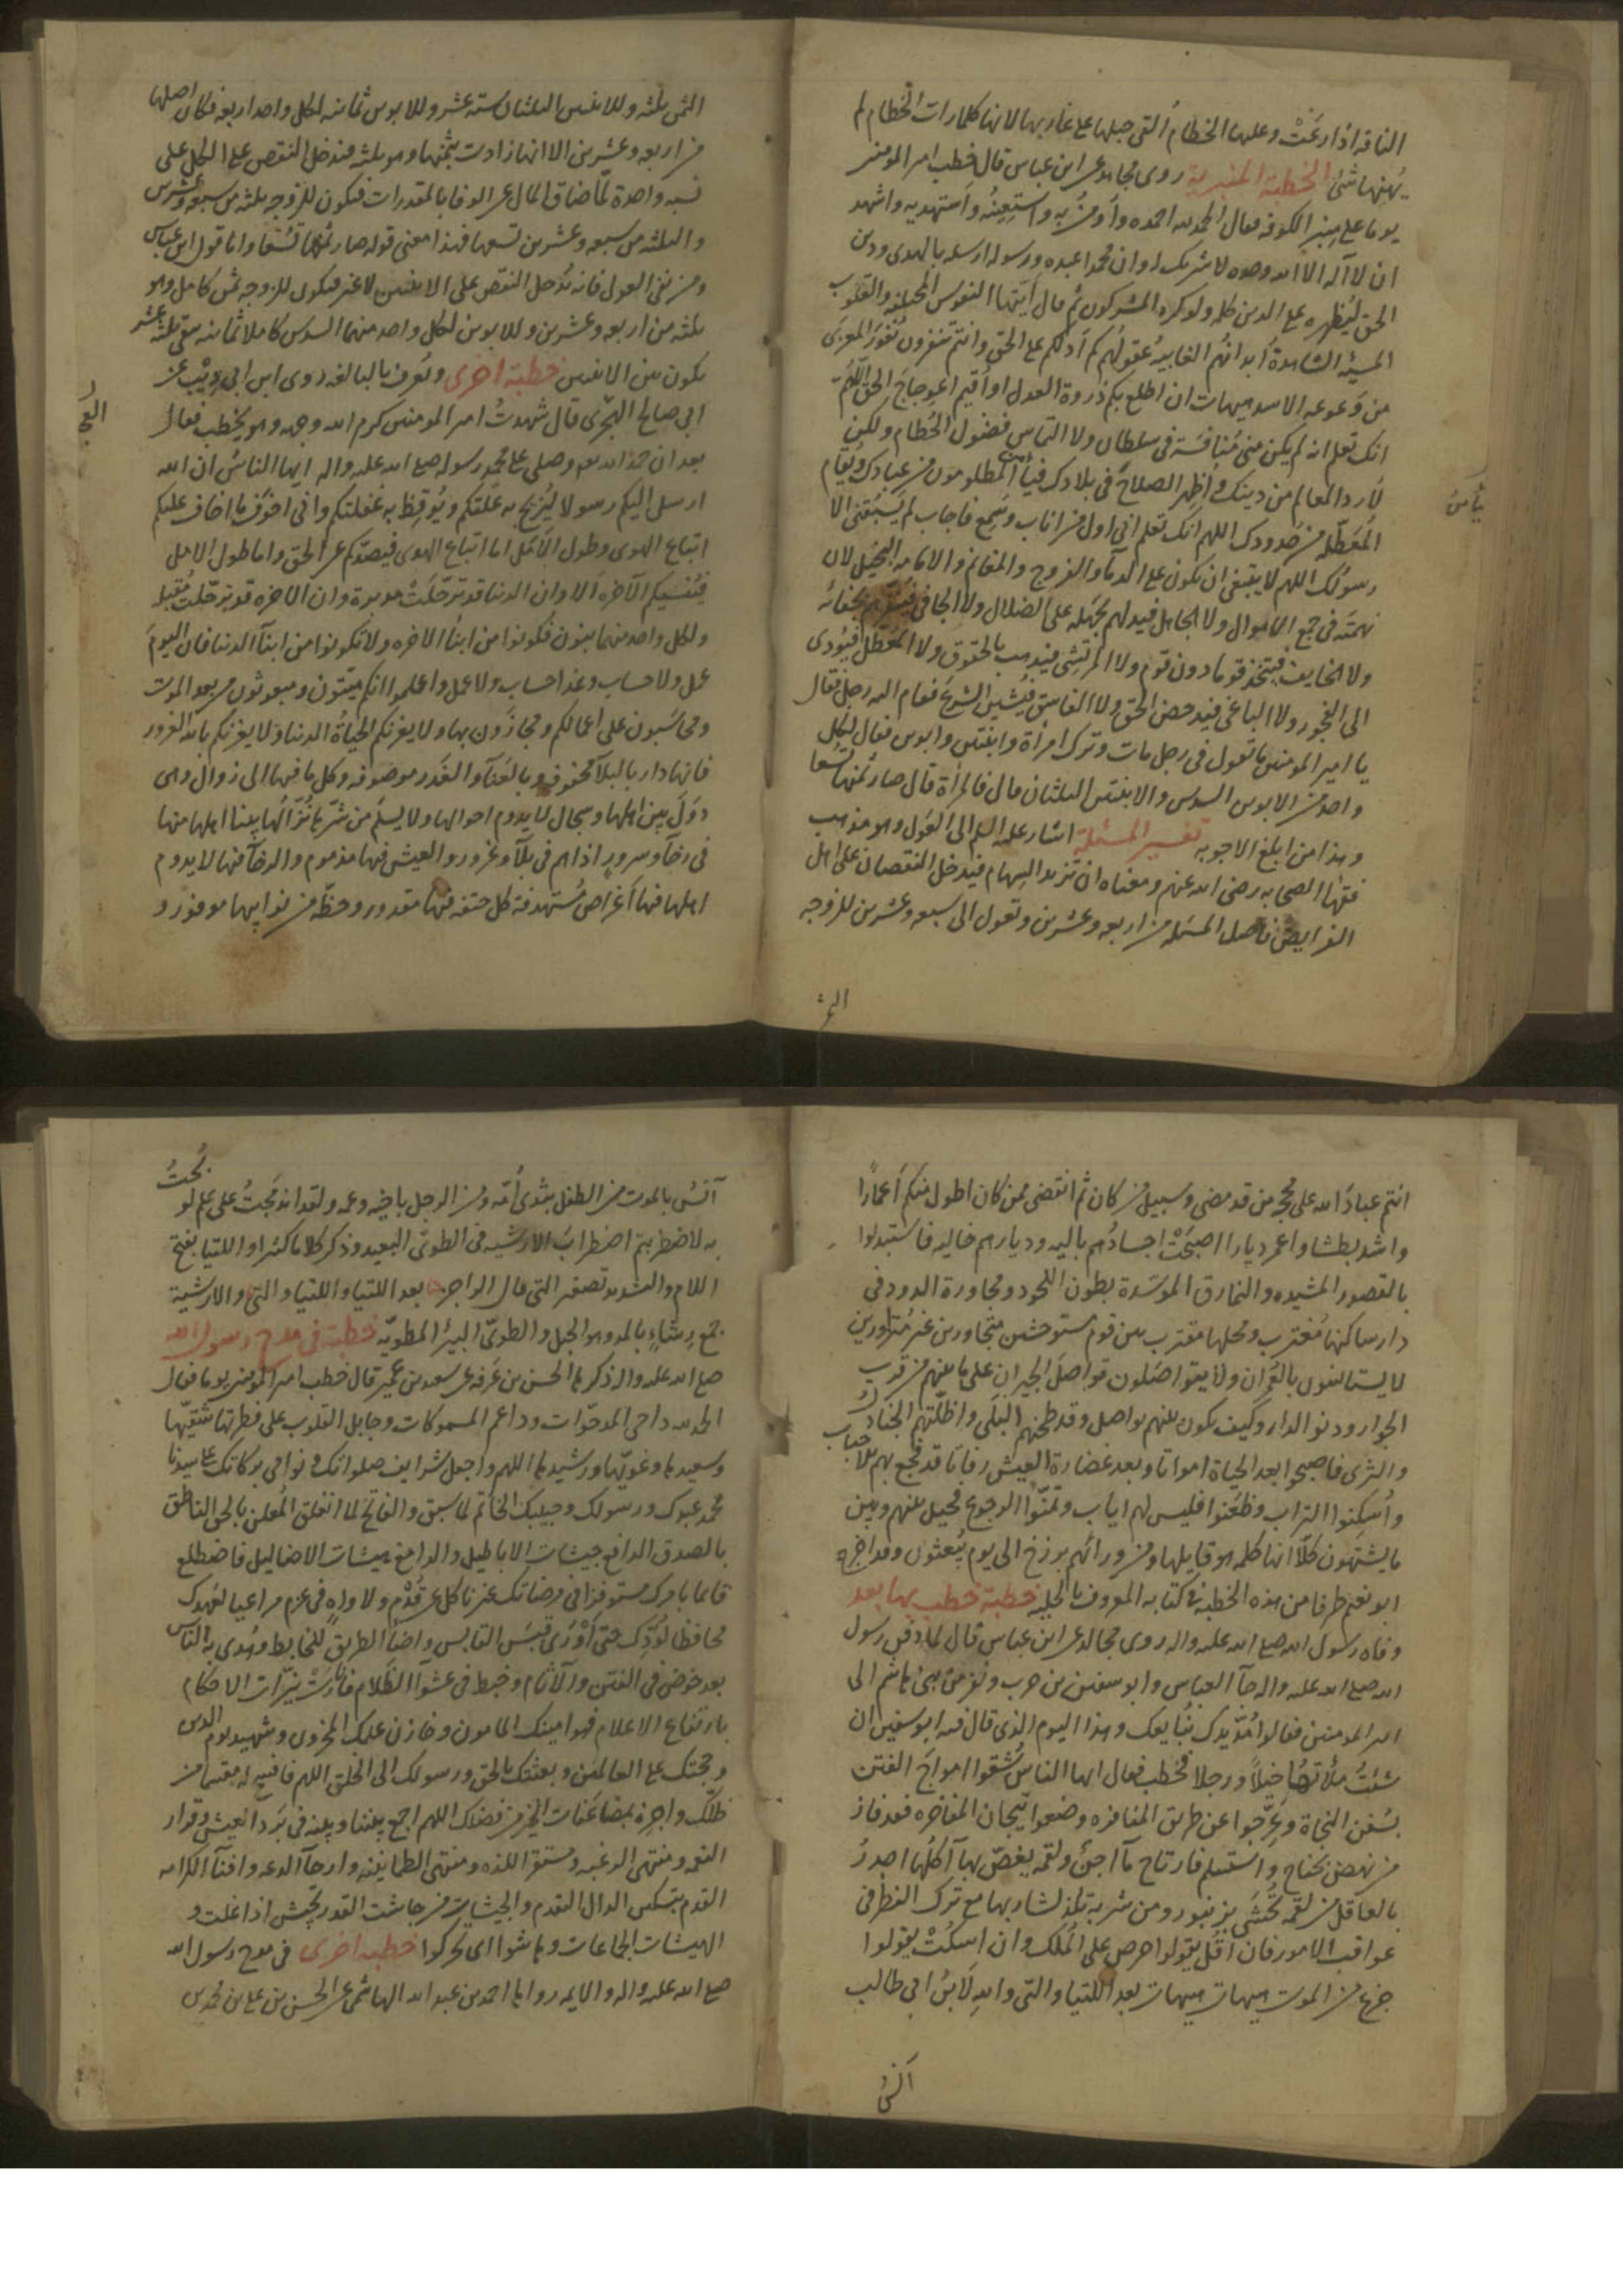 الناقة اذا رعَتْ وعليها الخطام اُلقي حبلها على غاربها لانها كلما رات الخطام لم
يُهنها شئ الخطبة المنبرية روى مجاهد عن ابن عباس قال خطب امير المومنين
يوما على منبر الكوفه فقال الحمد لله احمده وأومنُ به واستعينُه واستهديه واشهد
ان لا آله الا الله وحده لا شريك له وان محمدا عبده ورسوله ارسله بالهدى ودين
الحق ليُظهره على الدين كله ولو كره المشركون ثم قال ايّتها النفوس المختلفه والقلوب
المشتّته الشاهدةُ أبدانهم الغايبةُ عقولُهم كم أدلكم على الحق وانتم تنفرون نُفورَ المعزى
من وَعوعه الاسد هيهات ان اطلع بكم ذروة العدل او اُقيم اعوجاج الحق اللّهمّ
انك تعلم انه لم يكن منى مُنافسَةَ في سلطان ولا التماس فضول الحُطام ولكن
لأرد المعالم من دينك واُظهر الصلاحَ في بلادك فيأمن المظلومون من عبادك ويُقام
المُعَطّله من حُدودك اللهم انك تعلم انى اول من اناب وسَمِع فاجاب لم يَسْبُقنى الا
رسولك اللهم لا ينبغى ان يكون على الدمآء والفروج والمغانم والامامه البخيل لان
نهمَتَه في جمع الاموال ولا الجاهل فيدلهم بجهله على الضلال ولا الجافى فيُنفّرهم بجفائه
ولا الخايف فيتخذ قوما دون قوم ولا المرتشي فيذهب بالحقوق ولا المُعطّل فيُؤدى
الى الفجور ولا الباغى فيدحض الحق ولا الفاسق فيُشين الشرع فقام اليه رجل فقال
يا امير المومنين ما تقول في رجل مات وترك امرأة وابنتين وابوين فقال لكل
واحد من الابوين السدس والابنتين الثلثان قال فالمرأة قال صار ثمنها تُسعا
وهذا من ابلغ الاجوبه تفسير المسئلة اشار عليه السلم الى العَول وهو مذهب
فقهآ الصحابه رضى الله عنهم ومعناه ان تزيد السهام فيدخل النقصان على اهل
الفرايض فاصل المسئله من اربعه وعشرين وتعول الى سبعه وعشرين للزوجه
الثمن
يأمن
الثمن ثلثه وللابنتين الثلثان سته عشر وللابوين ثمانيه لكل واحد اربعه فكان اصلها
من اربعه وعشرين الا انها زادت بثمنها وهو ثلثه فيدخل النقص على الكل على
نسبه واحدة لمّا ضاق المال عن الوفا بالمقدرات فيكون للزوجه ثلثه من سبعه وعشرين
والثلثه من سبعه وعشرين تسعها فهذا معنى قوله صار ثمنُها تُسْعا واما قول ابن عباس
ومن نفى العول فانه يُدخل النقص على الابنتين لا غير فيكون للزوجه ثمن كامل وهو
ثلثه من اربعه وعشرين وللابوين لكل واحد منهما السدس كاملا ثمانيه يبقى ثلثه عشر
يكون بين الابنتين خطبة اخرى وتعرف بالبالغه روى ابن ابى ذِيْب عن
ابي صالح العجلى قال شهدتُ امير المومنين كرم الله وجهه وهو يخطب فقال
بعد ان حمد الله تعالى وصلى على محمد رسوله صلى الله عليه واله ايها الناس ان الله
ارسل اليكم رسولا ليُزيح به عِلّتكم ويُوقِظ به غفلتكم وانّ اخوَف ما اخاف عليكم
اتباع الهوى وطول الامَل اما اتباع الهوى فيصدّكم عن الحق واما طول الامل
فيُنسيكم الآخره الا وان الدنيا قد ترحّلتْ مدبرة وان الاخره قد ترحّلت مُقبله
ولكل واحد منهما بنون فكونوا من ابنآ الاخره ولا تكونوا من ابنآ الدنيا فان اليومَ
عمل ولا حساب وغدا حساب ولا عمل واعلموا انكم ميّتون ومبعوثون من بعد الموت
ومحاسَبون على اعمالكم ومجازَون بها ولا يغرنكم الحياةُ الدنيا ولا يغرنكم بالله الغرور
فانها دار بالبلآ محفوفة وبالعَنآ والغَدر موصوفه وكل ما فيها الى زوال وهى
دوَلَ بين اهلها وسجال لا يدوم احوالها ولا يسلَم من شرّها نُزّالُها بينا اهلها منها
في رخآ وسرورٍ اذا هم في بلآ وغرور والعيش فيها مذموم والرخآ فيها لا يدوم
اهلها فيها أغراض مُستهدفة كل حتفه فيها مقدور وحظّه من نوايبها موفور و
العج
انتم عبادَ الله على محجّه من قد مضى وسبيل من كان ثم انقضى ممن كان اطول منكم أعمارًا
واشد بطشا واعمر ديارا اصبحَتْ اجسادُهم باليه وديارهم خاليه فاستبدلوا
بالقصور المشيده والنمارق الموسّدة بطون اللحود ومجاورة الدود في
دار ساكنها مُغترب ومحلها مقترب بين قوم مستوحشين متجاورين غير متزاورين
لا يستانسون بالعُمران ولا يتواصَلون تواصلَ الجيران على ما بينهم من قرب
الجوار ودنو الدار وكيف يكون بينهم تواصل وقد طحنهم البَلَى واظلّتهم الجنادل
والثرى فاصبحوا بعد الحياة امواتا وبعد غضارة العيش رفاتا قد فجع بهم الاحباب
واُسكِنوا التراب وظعَنوا فليس لهم اياب وتمنّوا الرجوع فحيل بينهم وبين
ما يشتهون كلّا انها كلمه هو قايلها ومن ورائهم برزخ الى يوم يُبعثون وقد اخرج
ابو نعيم طرفا من هذه الخطبة في كتابه المعروف بالحليه خطبة خطب بها بعد
وفاه رسول الله صلى الله عليه واله روى مجالد عن ابن عباس قال لما دفن رسول
الله صلى الله عليه واله جآ العباس وابو سفين بن حرب ونفر من بنى هاشم الى
امير المومنين فقالوا مُدّ يدك نُبايعك وهذا اليوم الذى قال فيه ابو سفين ان
شئتَ ملأتهُا خيلاً ورجلا فخطب فقال ايها الناسُ شُقّوا امواجَ الفتن
بسُفن النجاة وعَرّجوا عن طريق المنافره وضعوا تيجان المفاخره فقد فاز
من نهض بجناح واستسلم فارتاح مآ اجنّ ولقمه يغصّ بهآ آكلُها اجدرُ
بالعاقل من لقمه تُحشى بزنبور ومن شربة تلذ لشاربها مع ترك النظر فى
عواقب الامور فان اقُل يقولوا حرص على المُلك وان اسكُتْ يقولوا
جزع من الموت هيهات هيهات بعد اللتيا والتى والله لَابنُ ابى طالب
آنس
آنسُ بالموت من الطفل بثدى اُمّه ومن الرجل باخيه وعمه ولقد اندمَجتُ على علم لو بُحتُ
به لاضطربتم اضطرابَ الارشيه في الطوىّ البعيد وذكر كلاما كثيرا واللتيا بفتح
اللام والتشديد تصغير التى قال الراجز بعد اللتيا واللتيا والتى والارشية
جمع رِشآءٍ بالمد وهو الحبل والطوىّ البئر المطويّه خطبة في مدح رسول الله
صلى الله عليه واله ذكرها الحسن بن عَرَفه عن سعد بن عمير قال خطب امير المومنين يوما فقال
الحمد لله داحى المدحوّات وداعم المسموكات وجابل القلوب على فطرتها شقيّها
وسعيدها وغويّها ورشيدها اللهم واجعل شرايف صلواتك ونوامى بركاتك على سيدنا
محمد عبدك ورسولك وحبيبك الخاتم لما سبق والفاتح لما انغلق المُعلن بالحق الناطق
بالصدق الدافع جيشات الاباطيل والدامغ هيشات الاضاليل فاضطلع
قائما بامرك مستوفزا فى مرضاتك غير ناكل عن قُدْم ولا واهٍ فى عزم مراعيا لعهدك
محافظا لودّك حتى أوْرَى قبَس القابس واضآ الطريق للخابط وهُدى به الناس
بعد خوض فى الفتن والآثام وخبط فى عشوآ الظلام فانارَتْ نيّرات الاحكام
بارتفاع الاعلام فهو امينك المامون وخازن علمك المخزون وشهيدك يوم الدين
وحجتك على العالمين وبعثتك بالحق ورسولك الى الخلق اللهم فافسح له مفتسحا من
ظلّك واجزه بمضاعَفات الخير من فضلك اللهم اجمع بيننا وبينه فى بَرد العيش وقرار
النعمه ومنتهى الرغبه ومستقر اللذه ومنتهى الطمانينه وارجآ الدعه وافنآ الكرامه
القدم بتسكين الدال التقدم والجيشات من جاشت القدر تجيش اذا غلت و
الهيشات الجماعات وهاشوا اى تحركوا خطبه اخرى فى مدح رسول الله
صلى الله عليه واله والايمه رواها احمد بن عبد الله الهاشمى عن الحسن بن على بن محمد بن